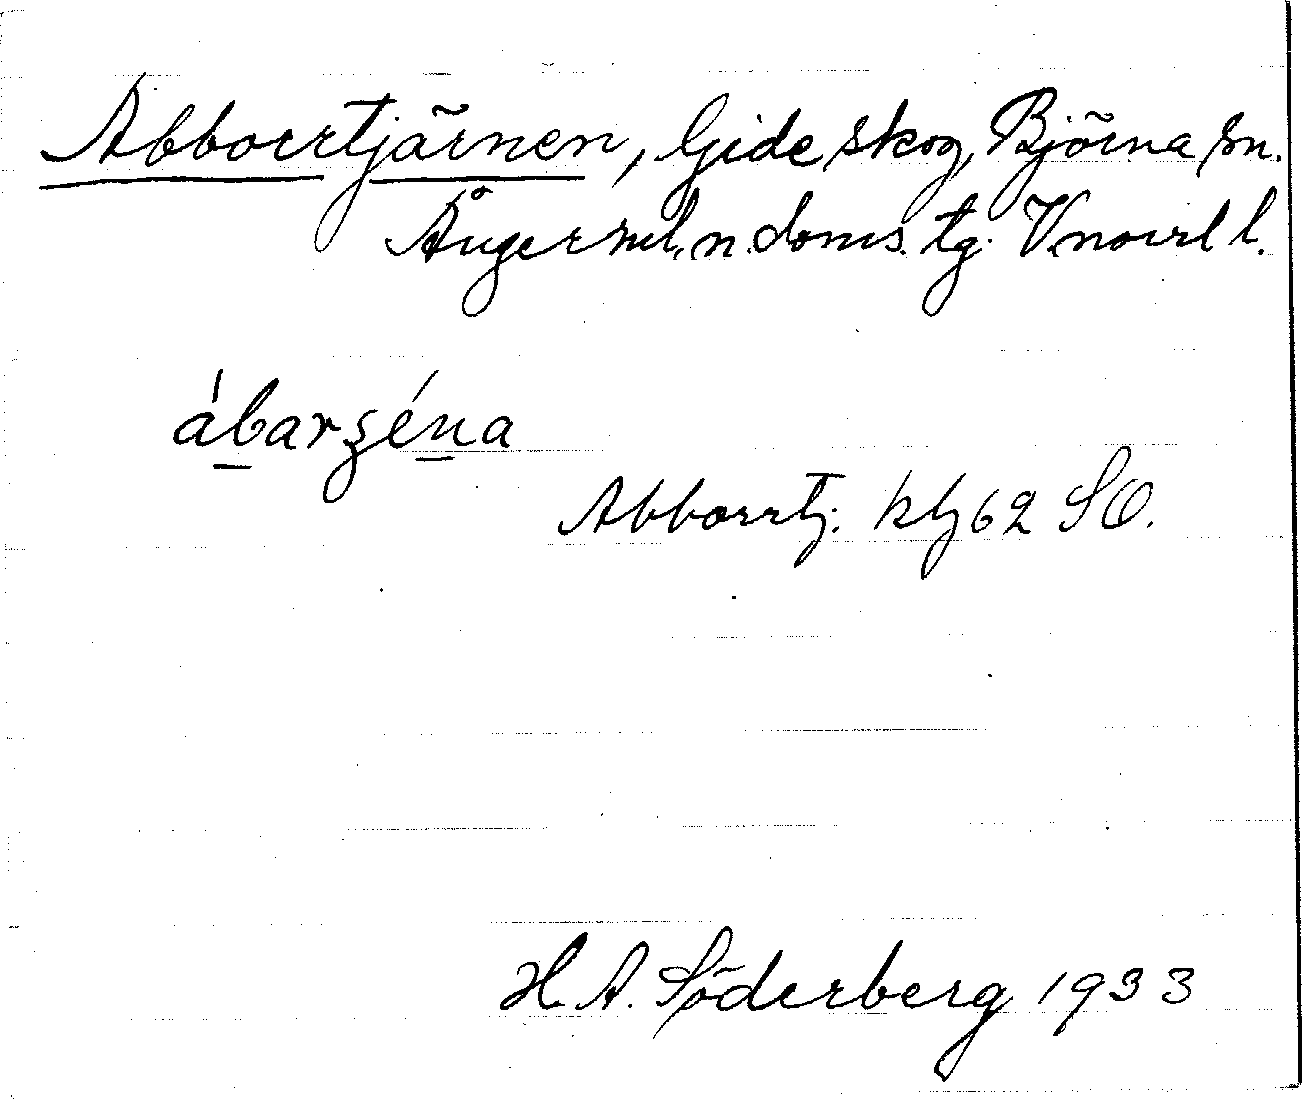 Abborrtjärnen, Gideå skog, Björna sn.
Ångerml. n. doms. tg. V.norrl l.
ábarʂéna
Abborrtj. kbl 62 SO.
H. A. Söderberg 1933